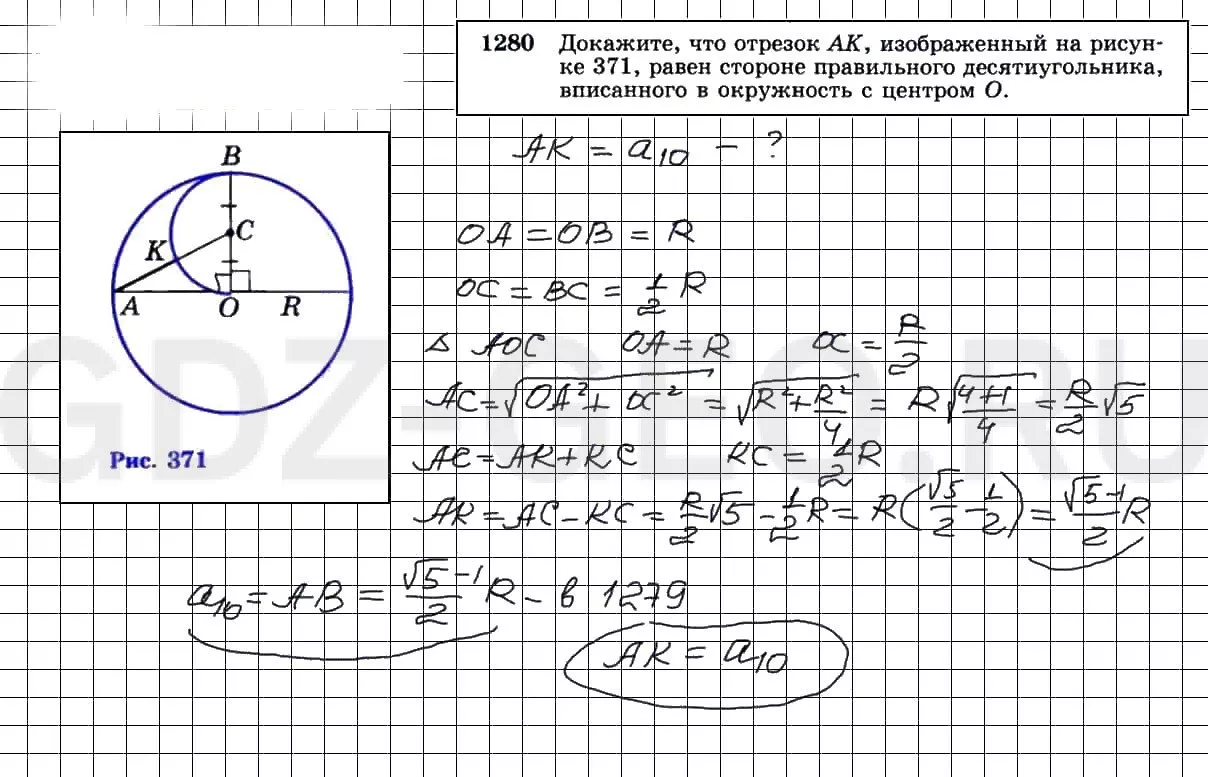 1280 Докажите, что отрезок AK, изображенный на рисун-
ке 371, равен стороне правильного десятиугольника,
вписанного в окружность с центром O.
B
C
K
A
O
R
Рис. 371
AK = a₁₀ - ?
OA = OB = R
OC = BC = 1/2 R
△ AOC OA = R OC = R/2
AC = √(OA² + OC²) = √(R² + R²/4) = R√((4+1)/4) = R/2 √5
AC = AK + KC KC = 1/2 R
AK = AC - KC = R/2 √5 - 1/2 R = R(√5/2 - 1/2) = (√5-1)/2 R
a₁₀ = AB = (√5-1)/2 R - в 1279
AK = a₁₀
GDZ-GLO.RU